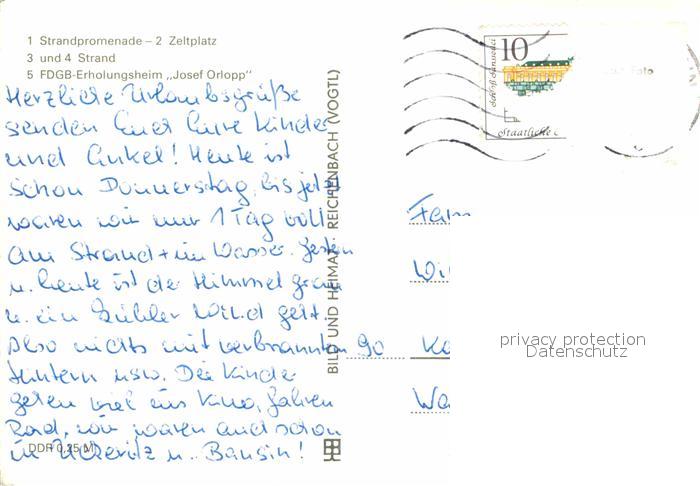 1 Strandpromenade – 2 Zeltplatz
3 und 4 Strand
5 FDGB-Erholungsheim „Josef Orlopp"
Herzliche Urlaubsgrüße
senden Euch Eure Kinder
und Enkel! Heute ist
schon Donnerstag, bis jetzt
waren wir nur 1 Tag voll
am Strand + im Wasser. Gestern
u. heute ist der Himmel grau
u. ein kühler Wind geht.
Also nichts mit verbrannten
Hintern usw. Die Kinder
gehen viel ins Kino, fahren
Rad, wir waren auch schon
in Ückeritz u. Bansin!
DDR 0,25 M
BILD UND HEIMAT REICHENBACH (VOGTL)
10
Staatliche
Fam
Wil
90
Ka
Wa
privacy protection
Datenschutz